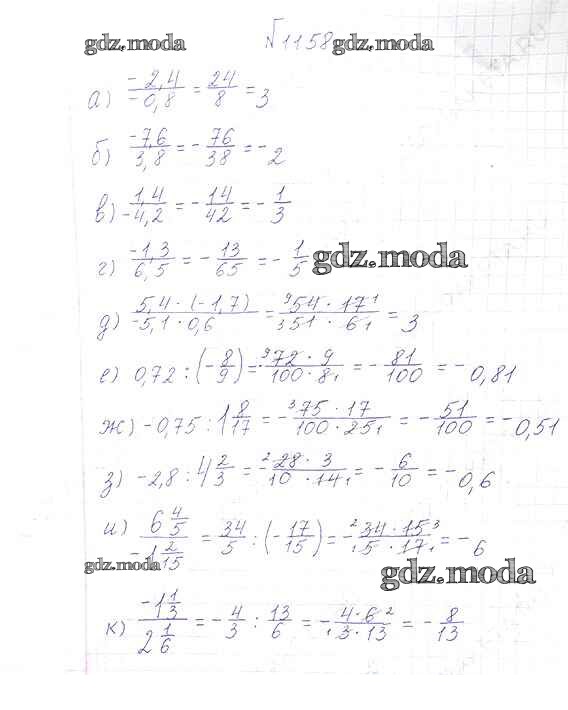 gdz.moda №1158 gdz.moda
а) -2,4/-0,8 = 24/8 = 3
б) -7,6/3,8 = - 76/38 = - 2
в) 1,4/-4,2 = - 14/42 = - 1/3
г) -1,3/6,5 = - 13/65 = - 1/5 gdz.moda
д) 5,4 · (-1,7)/-5,1 · 0,6 = ⁹54 · 17¹/₃51 · 6₁ = 3
е) 0,72 : (- 8/9) = - ⁹72 · 9/100 · 8₁ = - 81/100 = - 0,81
ж) -0,75 : 1 8/17 = - ³75 · 17/100 · 25₁ = - 51/100 = - 0,51
з) -2,8 : 4 2/3 = - ²28 · 3/10 · 14₁ = - 6/10 = - 0,6
и) 6 4/5/-1 2/15 = 34/5 : (- 17/15) = - ²34 · 15³/₁5 · 17₁ = - 6
gdz.moda gdz.moda
к) -1 1/3/2 1/6 = - 4/3 : 13/6 = - 4 · 6²/₁3 · 13 = - 8/13